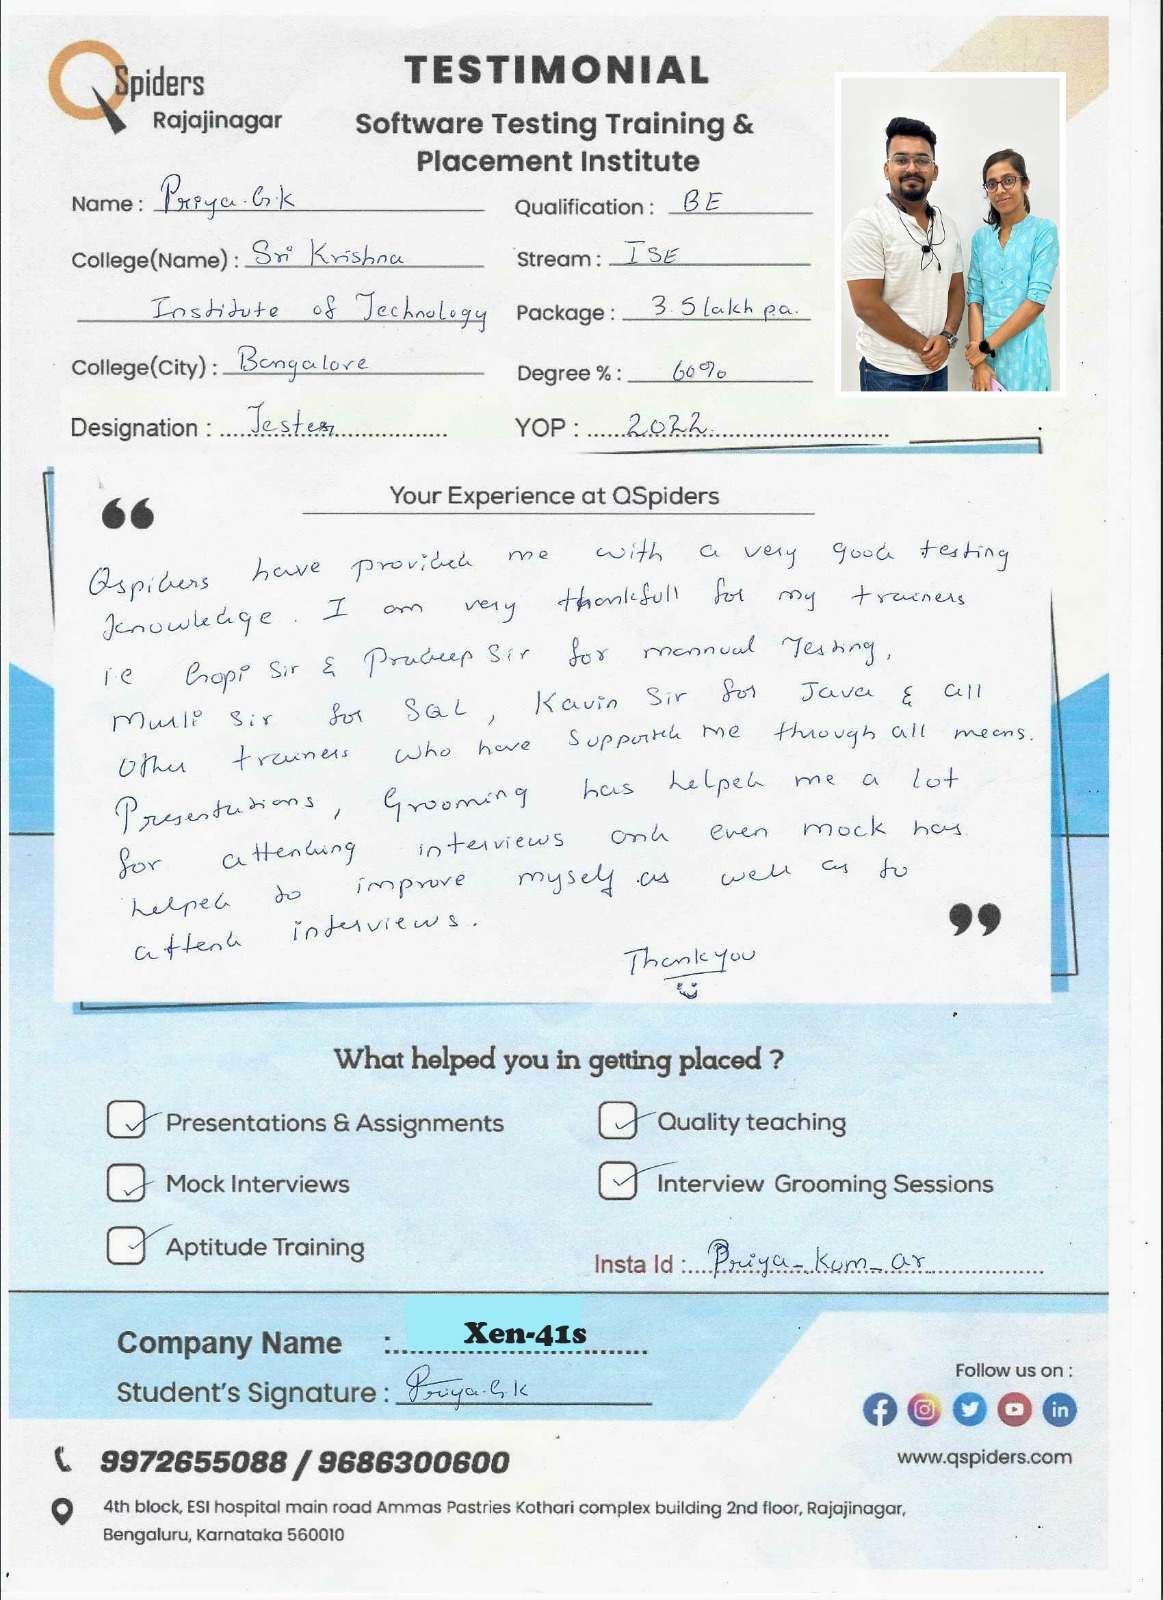 QSpiders
Rajajinagar
TESTIMONIAL
Software Testing Training &
Placement Institute
Name : Priya.G.K
Qualification : BE
College(Name) : Sri Krishna
Stream : ISE
Institute of Technology
Package : 3.5 lakh p.a.
College(City) : Bangalore
Degree % : 60%
Designation : Tester
YOP : 2022
Your Experience at QSpiders
Qspiders have provided me with a very good testing
knowledge. I am very thankfull for my trainers
i.e Gopi Sir & Pradeep Sir for mannual Testing,
Murli Sir for SQL, Kavin Sir for Java & all
other trainers who have supported me through all means.
Presentations, Grooming has helped me a lot
for attending interviews and even mock has
helped to improve myself as well as to
attend interviews.
Thank you
What helped you in getting placed ?
Presentations & Assignments
Quality teaching
Mock Interviews
Interview Grooming Sessions
Aptitude Training
Insta Id : Priya_kum_ar
Company Name : Xen-41s
Student's Signature : Priya.G.K
Follow us on :
www.qspiders.com
9972655088 / 9686300600
4th block, ESI hospital main road Ammas Pastries Kothari complex building 2nd floor, Rajajinagar,
Bengaluru, Karnataka 560010